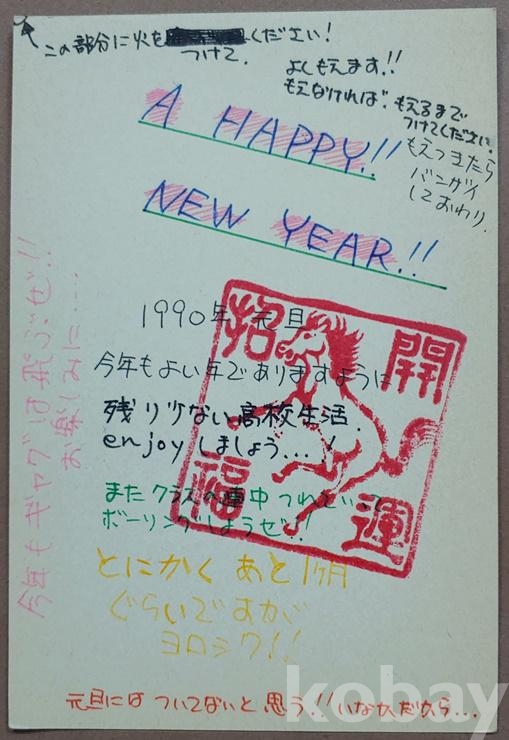 この部分に火をつけてください!
よくもえます!!
もえなければ、もえるまで
つけてください。
もえつきたら
バンザイ
しておわり。
A HAPPY!!
NEW YEAR.!!
1990年 元旦
今年もよい年でありますように
残り少ない高校生活、
enjoyしましょう....!
またクラスの連中つれていって
ボーリングしようぜ!!
とにかく あと1ヶ月
ぐらいですが
ヨロシク!!
今年もギャグは飛ぶぜ!!
お楽しみに....
元旦には ついてないと思う!! いなかだから...
招福
開運
kobay